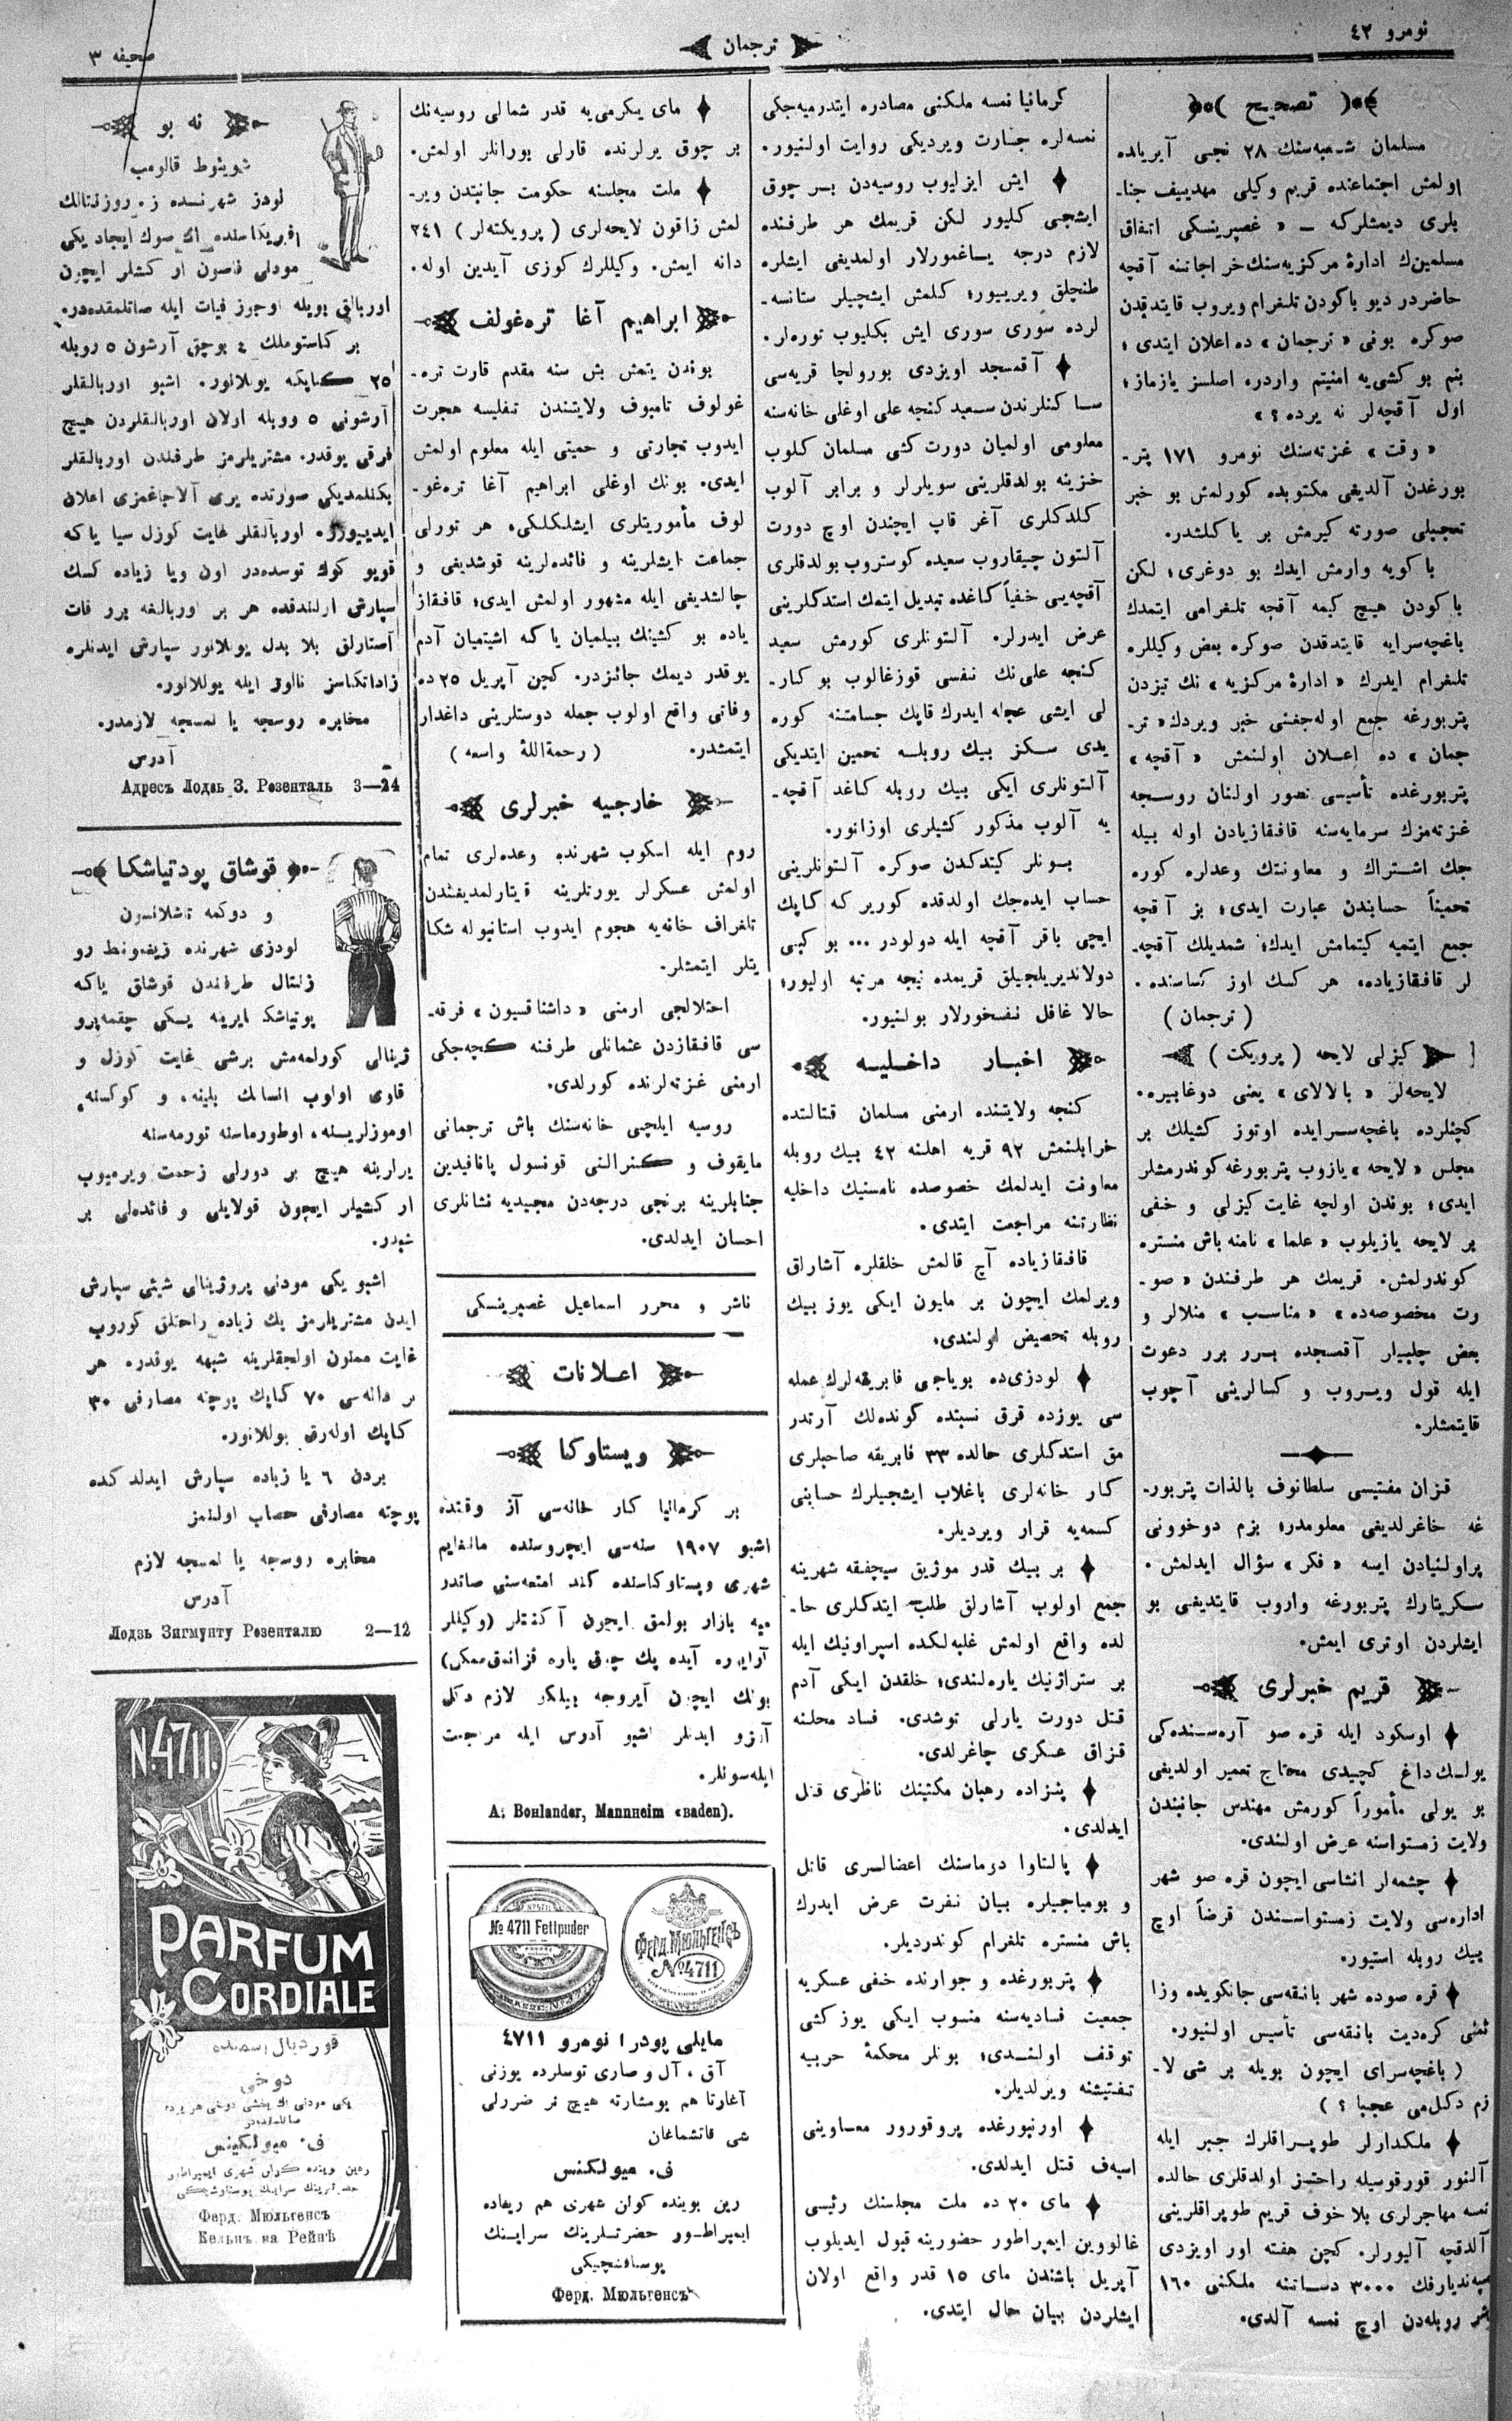 نومرو ٤٢
ترجمان
صحیفه ٣
تصحیح
مسلمان شعبه‌سنك ٢٨ نجی آپریلده
اولمش اجتماعنده قریم وكیلی مهدییف جنا-
بلری دیمشلركه — « غصپرینسكی اتفاق
مسلمین‌ك ادارۀ مركزیه‌سنك خراجاتنه آقچه
حاضردر دیو باكودن تلغرام ویروب قایتدیقدن
صوكره بونی « ترجمان » ده اعلان ایتدی ؛
بنم بو كشی‌یه امنیتم واردره اصلسز یازماز ؛
اول آقچه‌لر نه یرده ؟ »
« وقت » غزته‌سنك نومرو ١٧١ پتر-
بورغدن آلدیغی مكتوبده كورلمش بو خبر
تعجیلی صورته كیرمش بر یاكلشدر.
باكویه وارمش ایدك بو دوغری ؛ لكن
باكودن هیچ كیمه آقچه تلغرامی ایتمدك
باغچه‌سرایه قایتدقدن صوكره بعض وكیللره
تلغرام ایدرك « ادارۀ مركزیه » نك تیزدن
پتربورغه جمع اوله‌جغنی خبر ویردك « تر-
جمان » ده اعلان اولنمش « آقچه »
پتربورغده تأسیسی تصور اولنان روسجه
غزته‌مزك سرمایه‌سنه قافقازیادن اوله بیله
جك اشتراك و معاونتك وعدلره كوره
تخمیناً حسابندن عبارت ایدی ؛ بز آقچه
جمع ایتمیه كیتمامش ایدك ؛ شمدیلك آقچه-
لر قافقازیاده، هر كسك اوز كساسنده .
( ترجمان )
كیزلی لایحه ( پرویكت )
لایحه‌لر « بالالای » یعنی دوغابیره.
كچنلرده باغچه‌سرایده اوتوز كشیلك بر
مجلس « لایحه » یازوب پتربورغه كوندرمشلر
ایدی ؛ بوندن اولجه غایت كیزلی و خفی
بر لایحه یازیلوب « علما » نامنه باش منستره
كوندرلمش. قریمك هر طرفندن « صو-
رت مخصوصه‌ده » « مناسب » منلالر و
بعض چلبیلر آقمسجده برر برر دعوت
ایله قول ویروب و كسالرینی آچوب
قایتمشلر.
قزان مفتیسی سلطانوف بالذات پتربور-
غه خاغرلدیغی معلومدر؛ بزم دوخوونی
پراولنیادن ایسه « فكر » سؤال ایدلمش .
سكریتارك پتربورغه واروب قایتدیغی بو
ایشلردن اوتری ایمش.
قریم خبرلری
اوسكود ایله قره صو آره‌سنده‌كی
یولك داغ كچیدی محتاج تعمیر اولدیغی
بو یولی مأموراً كورمش مهندس جانبندن
ولایت زمستواسنه عرض اولندی.
چشمه‌لر انشاسی ایچون قره صو شهر
اداره‌سی ولایت زمستواسندن قرضاً اوچ
بیك روبله استیور.
قره صوده شهر بانقه‌سی جانكویده وزا
ئمنی كره‌دیت بانقه‌سی تأسیس اولنیور.
( باغچه‌سرای ایچون بویله بر شی لا-
زم دكل‌می عجبا ؟ )
ملكدارلر طوپراقلرك جبر ایله
آلنور قورقوسیله راحتسز اولدقلری حالده
نمسه مهاجرلری بلا خوف قریم طوپراقلرینی
آلدقچه آلیورلر. كچن هفته اور اویزدی
٣٠٠٠ دساتنه ملكنی ١٦٠
روبله‌دن اوچ نمسه آلدی.
كرمانیا نمسه ملكنی مصادره ایتدرمیه‌جكی
نمسه‌لره جسارت ویردیكی روایت اولنیور.
ایش ایزلیوب روسیه‌دن بر چوق
ایشجی كلیور لكن قریمك هر طرفنده
لازم درجه یاغمورلار اولمدیغی ایشلره
طنچلق ویریبور؛ كلمش ایشچیلر ستانسه-
لرده سوری سوری ایش بكلیوب تورەلر.
آقمسجد اویزدی بورولچا قریه‌سی
ساكنلرندن سعید كنجه علی اوغلی خانه‌سنه
معلومی اولمیان دورت كشی مسلمان كلوب
خزینه بولدقلرینی سویلرلر و برابر آلوب
كلدكلری آغر قاپ ایچندن اوچ دورت
آلتون چیقاروب سعیده كوستروب بولدقلری
آقچه‌یی خفیاً كاغده تبدیل ایتمك استدكلرینی
عرض ایدرلر. آلتونلری كورمش سعید
كنجه علی‌نك نفسی قوزغالوب بو كار-
لی ایشی عجله ایدرك قاپك جسامتنه كوره
یدی سكز بیك روبله تخمین ایتدیكی
آلتونلری ایكی بیك روبله كاغد آقچه-
یه آلوب مذكور كشیلری اوزاتور.
بونلر كیتدكدن صوكره آلتونلرینی
حساب ایده‌جك اولدقده كوریر كه كاپك
ایچی باقر آقچه ایله دولودر ... بو كبی
دولاندیریلجیلق قریمده نیچه مرتبه اولیور؛
حالا غافل نفسخورلار بولنیور.
اخبار داخلیه
كنجه ولایتنده ارمنی مسلمان قتالنده
خرابلنمش ٩٢ قریه اهلنه ٤٢ بیك روبله
معاونت ایدلمك خصوصده نامستنیك داخلیه
نظارتنه مراجعت ایتدی.
قافقازیاده آچ قالمش خلقلره آشارلق
ویرلمك ایچون بر ملیون ایكی یوز بیك
روبله تخصیص اولندی.
لودزی‌ده بویاجی فابریقه‌لرك عمله
سی یوزده قرق نسبتده كونده‌لك آرتدر
مق استدكلری حالده ٣٣ فابریقه صاحبلری
كار خانه‌لری باغلاب ایشجیلرك حسابنی
كسمه‌یه قرار ویردیلر.
بر بیك قدر موژیق سیچفقه شهرینه
جمع اولوب آشارلق طلب ایتدكلری حا-
لده واقع اولمش غلبه‌لكده اسپراونیك ایله
بر ستراژنیك یاره‌لندی؛ خلقدن ایكی آدم
قتل دورت یارلی توشدی. فساد محلنه
قزاق عسكری چاغرلدی.
پنزاده رهبان مكتبنك ناظری قتل
ایدلدی.
پالتاوا دوماسنك اعضالری قاتل
و بومباجیلره بیان نفرت عرض ایدرك
باش منستره تلغرام كوندردیلر.
پتربورغده و جوارنده خفی عسكریه
جمعیت فسادیه‌سنه منسوب ایكی یوز كشی
توقف اولندی؛ بونلر محكمۀ حربیه
تفتیشنه ویرلدیلر.
اورنبورغده پروقورور معاوینی
اسیه‌ف قتل ایدلدی.
مای ٢٠ ده ملت مجلسنك رئیسی
غالووین ایمپراطور حضورینه قبول ایدیلوب
آپریل باشندن مای ١٥ قدر واقع اولان
ایشلردن بیان حال ایتدی.
مای یكرمی‌یه قدر شمالی روسیه‌نك
بر چوق یرلرنده قارلی بورانلر اولمش.
ملت مجلسنه حكومت جانبندن ویر-
لمش زاقون لایحه‌لری ( پرویكته‌لر ) ٢٤١
دانه ایمش. وكیللرك كوزی آیدین اوله.
ابراهیم آغا تره‌غولف
بوندن یتمش بش سنه مقدم قارت تره-
غولوف تامبوف ولایتندن تفلیسه هجرت
ایدوب تجارتی و حمیتی ایله معلوم اولمش
ایدی. بونك اوغلی ابراهیم آغا تره‌غو-
لوف مأموریتلری ایشلكلكی، هر تورلی
جماعت ایشلرینه و فائده‌لرینه قوشدیغی و
چالشدیغی ایله مشهور اولمش ایدی؛ قافقاز
یاده بو كشینك بیلمیان یاكه اشیتمیان آدم
یوقدر دیمك جائزدر. كچن آپریل ٢٥ ده
وفاتی واقع اولوب جمله دوستلرینی داغدار
ایتمشدر. ( رحمةاللهٔ واسعه )
خارجیه خبرلری
روم ایله اسكوب شهرنده وعده‌لری تمام
اولمش عسكرلر یورتلرینه قیتارلمدیغندن
تلغراف خانه‌یه هجوم ایدوب استانبوله شكا
یتلر ایتمشلر.
اختلالجی ارمنی « داشناقسیون » فرقه-
سی قافقازدن عثمانلی طرفنه كچه‌جكی
ارمنی غزته‌لرنده كورلدی.
روسیه ایلچی خانه‌سنك باش ترجمانی
مایقوف و كنرالنی قونسول پانافیدین
جنابلرینه برنجی درجه‌دن مجیدیه نشانلری
احسان ایدلدی.
ناشر و محرر اسماعیل غصپرینسكی
اعلانات
ویستاوكا
بر كرمانیا كار خانه‌سی آز وقتده
اشبو ١٩٠٧ سنه‌سی ایچروسنده مانهایم
شهری ویستاوكاسنده كند امتعه‌سنی صاتدر
میه بازار بولمق ایچون آكنتلر (وكیللر
بونك ایچون آیروجه بیلكو لازم دكل
آرزو ایدنلر اشبو آدرس ایله مراجعت
ایله‌سونلر.
A. Bohlander, Mannheim «Baden).
№ 4711 Fettpuder
Ферд. Мюльгенсъ
№ 4711
مایلی پودرا نومرو ٤٧١١
آق ، آل و صاری توسلرده یوزنی
آغارتا هم یومشارته هیچ بر ضررلی
شی قاتشماغان
ف. میولكنس
رین بوینده كولن شهری هم ریفاده
ایمپراطور حضرتلرینك سراینك
پوستافشچیكی
Ферд. Мюльгенсъ
نه بو
شویئوط قالومب
لودز شهرنده ز. روزنتالك
فبریكاسنده اك صوك ایجاد یكی
مودلی فاصون ار كشلر ایچون
اوربالق بویله اوجوز فیات ایله صاتلمقده‌در.
بر كاستوملك ٤ بوچق آرشون ٥ روبله
٢٥ كاپكه یوللانور. اشبو اوربالقلر
آرشونی ٥ روبله اولان اوربالقلردن هیچ
فرقی یوقدر. مشتریلرمز طرفندن اوربالقلر
بكنلمدیكی صورتده یری آلاجاغمزی اعلان
ایدییورز. اوربالقلر غایت كوزل سیا یاكه
قویو كوك توسده‌در اون ویا زیاده كسك
سپارش ارلندقده هر بر اوربالغه برو قات
آستارلق بلا بدل یوللانور سپارش ایدنلره
زاداتكاسز نالوژ ایله یوللانور.
مخابره روسجه یا نمسجه لازمدر.
آدرس
Адресъ Лодзь З. Розенталь 3—24
قوشاق پودتیاشكا
و دوكمه تاشلانسون
لودزی شهرنده زیغمونط رو
زنتال طرفندن قوشاق یاكه
پوتیاشكا ایرینه یكی چقمه پرو
ژینالی كورلمه‌مش برشی غایت كوزل و
قاوی اولوب انسانك بلینه، و كوكسنه،
اوموزلرینه، اوطورماسنه تورمه‌سنه
یرارینه هیچ بر دورلی زحمت ویرمیوب
ار كشیلر ایچون قولایلی و فائده‌لی بر
شیدر.
اشبو یكی مودنی پروژینالی شیئی سپارش
ایدن مشتریلرمز پك زیاده راحتلق كوروب
غایت ممنون اولجقلرینه شبهه یوقدره هر
بر دانه‌سی ٧٠ كاپك پوچته مصارفی ٣٠
كاپك اوله‌رق یوللانور.
بردن ٦ یا زیاده سپارش ایدلدكده
پوچته مصارفی حصاب اولنمز
مخابره روسجه یا نمسجه لازم
آدرس
Лодзь Зигмунту Розенталю 2—12
№ 4711.
PARFUM
CORDIALE
قوردیال اسمنده
دوخی
یكی مودنی اك یخشی دوخی هر یرده
صاتلمقده‌در
ف. میولكینس
Ферд. Мюльгенсъ
Кельнъ на Рейнѣ